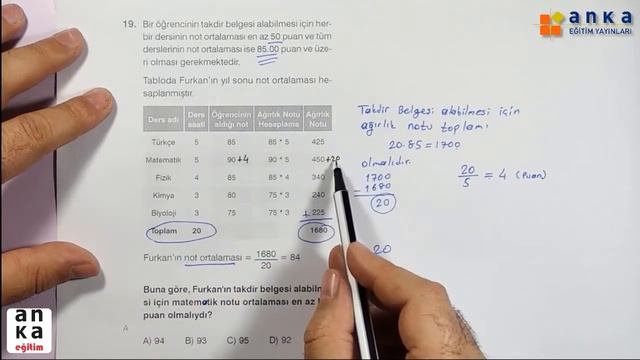 anka
EĞİTİM YAYINLARI
19. Bir öğrencinin takdir belgesi alabilmesi için her-
bir dersinin not ortalaması en az 50 puan ve tüm
derslerinin not ortalaması ise 85.00 puan ve üze-
ri olması gerekmektedir.
Tabloda Furkan'ın yıl sonu not ortalaması he-
saplanmıştır.
Ders adı Ders saati Öğrencinin aldığı not Ağırlık Notu Hesaplama Ağırlık Notu
Türkçe 5 85 85 * 5 425
Matematik 5 90 +4 90 * 5 450 +20
Fizik 4 85 85 * 4 340
Kimya 3 80 * 3 240
Biyoloji 3 75 75 * 3 + 225
Toplam 20 1680
Furkan'ın not ortalaması = 1680 / 20 = 84
Buna göre, Furkan'ın takdir belgesi alabilme-
si için matematik notu ortalaması en az
puan olmalıydı?
A) 94 B) 93 C) 95 D) 92
Takdir Belgesi alabilmesi için
ağırlık notu toplamı
20.85=1700
olmalıdır.
1700
- 1680
20
20 / 5 = 4 (Puan)
20
A
an
ka
eğitim